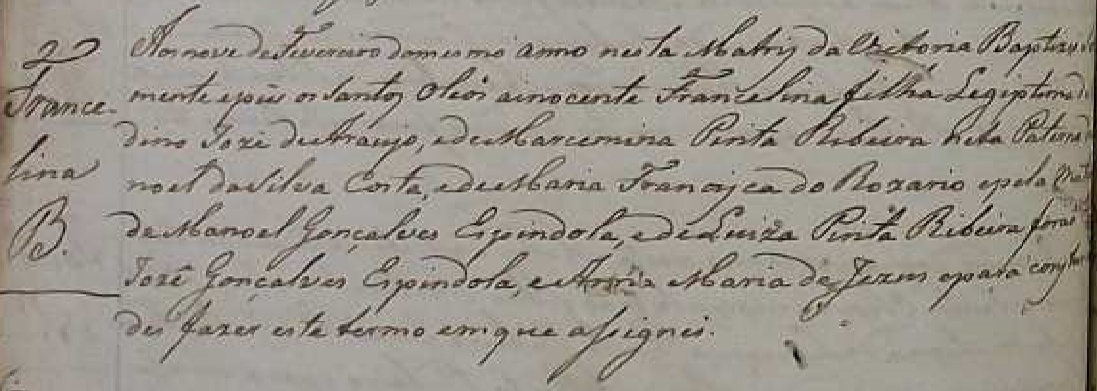 22
Aos nove de Fevereiro do mesmo anno nesta Matriz da Victoria Baptizei
France-
mente e pus os Santos Oleos a inocente Francelina filha Legiptima
dino Joze de Araujo, e de Marcemina Pinta Ribeira neta Paterna
lina
noel da Silva Costa, e de Maria Francisca do Rozario e pela
B.
de Manoel Gonçalves Espindola, e de Luiza Pinta Ribeira foraõ
Jozé Gonçalves Espindola, e Anna Maria de Jezus e para constar
dei fazer este termo em que assignei.